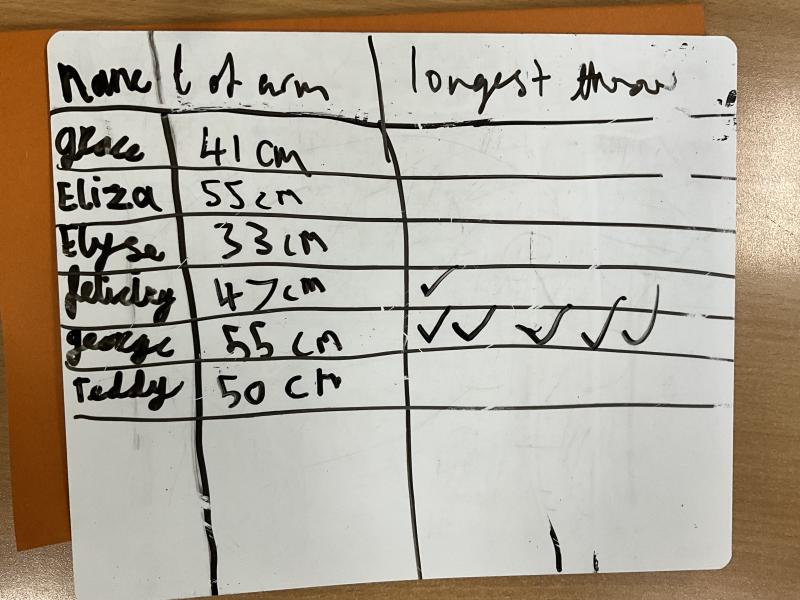 name l of arm longest throw
grace 41 cm
Eliza 55 cm
Elyse 33 cm
47cm ✓
george 55 cm ✓ ✓ ✓ ✓ ✓
Teddy 50 cm